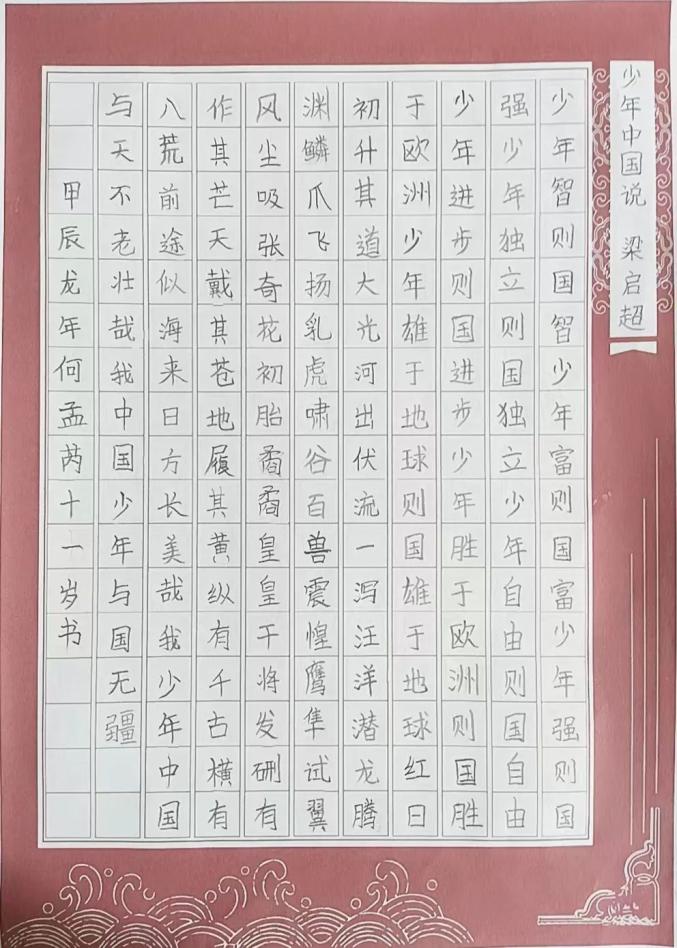 少年中国说 梁启超
少年智则国智少年富则国富少年强则国
强少年独立则国独立少年自由则国自由
少年进步则国进步少年胜于欧洲则国胜
于欧洲少年雄于地球则国雄于地球红日
初升其道大光河出伏流一泻汪洋潜龙腾
渊鳞爪飞扬乳虎啸谷百兽震惶鹰隼试翼
风尘吸张奇花初胎矞矞皇皇干将发硎有
作其芒天戴其苍地履其黄纵有千古横有
八荒前途似海来日方长美哉我少年中国
与天不老壮哉我中国少年与国无疆
甲辰龙年何孟芮十一岁书